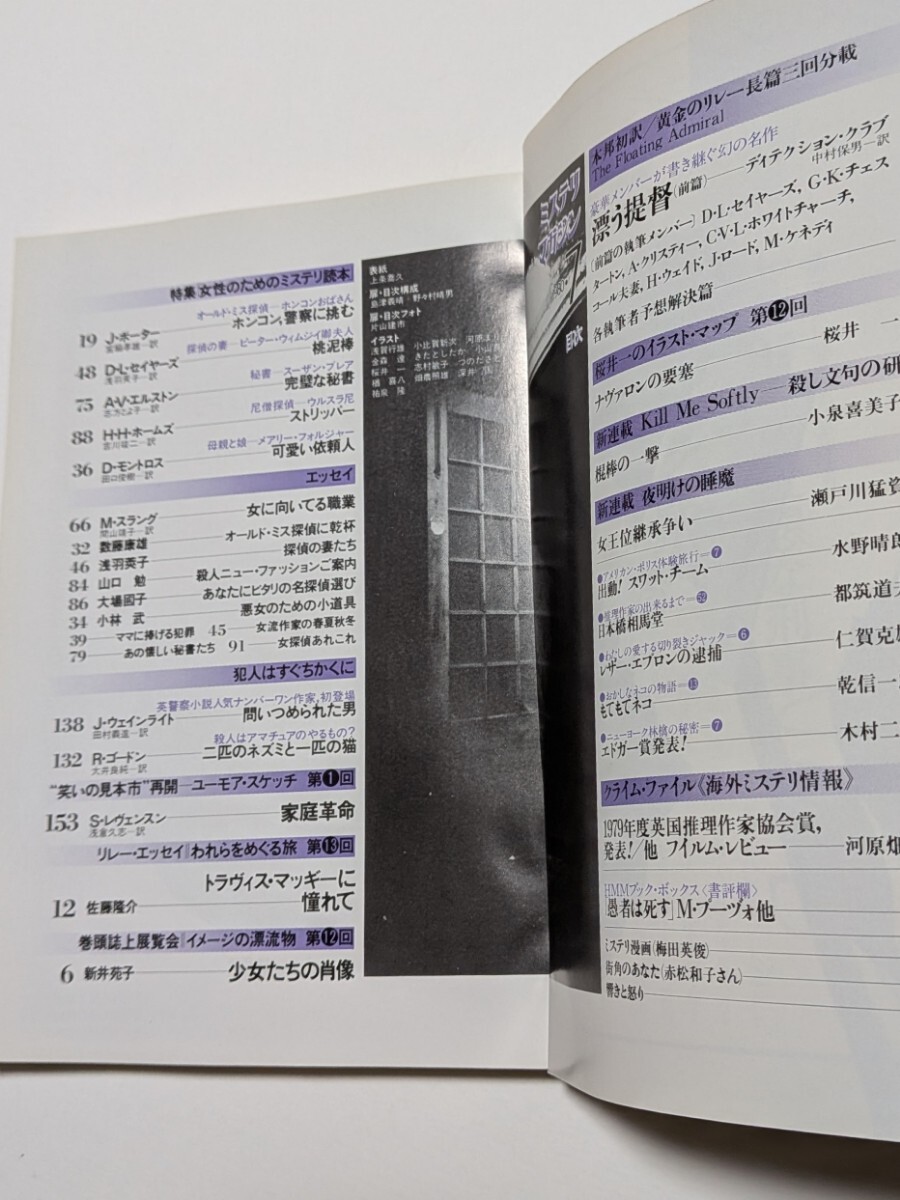 特集 女性のためのミステリ読本
オールド・ミス探偵―ホンコンおばさん
19 J・ポーター――ホンコン、警察に挑む
探偵の妻―ピーター・ウィムジイ卿夫人
48 D・L・セイヤーズ――桃泥棒
浅羽莢子―訳
秘書―スーザン・ブレア
75 A・V・エルストン――完璧な秘書
志方とよ子―訳
尼僧探偵―ウルスラ尼
88 H・H・ホームズ――ストリッパー
吉川竣二―訳
母親と娘―メアリー・フォルジャー
36 D・モントロス――可愛い依頼人
田口俊樹―訳
エッセイ
66 M・スラング――女に向いてる職業
32 数藤康雄――オールド・ミス探偵に乾杯
46 浅羽莢子――探偵の妻たち
84 山口 勉――殺人ニュー・ファッションご案内
86 大場國子――あなたにピタリの名探偵選び
34 小林 武――悪女のための小道具
39――ママに捧げる犯罪 45――女流作家の春夏秋冬
79――あの懐しい秘書たち 91――女探偵あれこれ
犯人はすぐちかくに
英警察小説人気ナンバーワン作家、初登場
138 J・ウェインライト――問いつめられた男
田村義進―訳
殺人はアマチュアのやるもの?
132 R・ゴードン――二匹のネズミと一匹の猫
大井良純―訳
“笑いの見本市”再開―ユーモア・スケッチ 第1回
153 S・レヴェンスン――家庭革命
浅倉久志―訳
リレー・エッセイ われらをめぐる旅 第13回
トラヴィス・マッギーに
12 佐藤隆介――憧れて
巻頭誌上展覧会 イメージの漂流物 第12回
6 新井苑子――少女たちの肖像
表紙
上条喬久
扉・目次構成
島津義晴・野々村晴男
扉・目次フォト
片山建市
イラスト
浅賀行雄
金森 達
桜井 一
楢 喜八
小比賀新次
きたとしたか
志村敏子
畑農照雄
つのださとし
ミステリ
マガジン
目次
本邦初訳/黄金のリレー長篇三回分載
The Floating Admiral
豪華メンバーが書き継ぐ幻の名作
漂う提督(前篇)――ディテクション・クラブ
中村保男―訳
(前篇の執筆メンバー) D・L・セイヤーズ、G・K・チェス
タートン、A・クリスティー、C・V・L・ホワイトチャーチ、
コール夫妻、H・ウェイド、J・ロード、M・ケネディ
各執筆者予想解決篇
桜井一のイラスト・マップ 第12回
ナヴァロンの要塞――桜井 一
新連載 Kill Me Softly――殺し文句の研
棍棒の一撃――小泉喜美子
新連載 夜明けの睡魔
女王位継承争い――瀬戸川猛資
●アメリカン・ポリス体験旅行=7
出動! スワット・チーム――水野晴郎
●推理作家の出来るまで=52
日本橋相馬堂――都筑道夫
●わたしの愛する切り裂きジャック=6
レザー・エプロンの逮捕――仁賀克
●おかしなネコの物語=13
もてもてネコ――乾信一
●ニューヨーク林檎の秘密=7
エドガー賞発表!――木村二
クライム・ファイル《海外ミステリ情報》
1979年度英国推理作家協会賞、
発表!/他 フイルム・レビュー――河原畑
HMMブック・ボックス〈書評欄〉
「愚者は死す」M・プーヅォ他
ミステリ漫画(梅田英俊)
街角のあなた(赤松和子さん)
響きと怒り